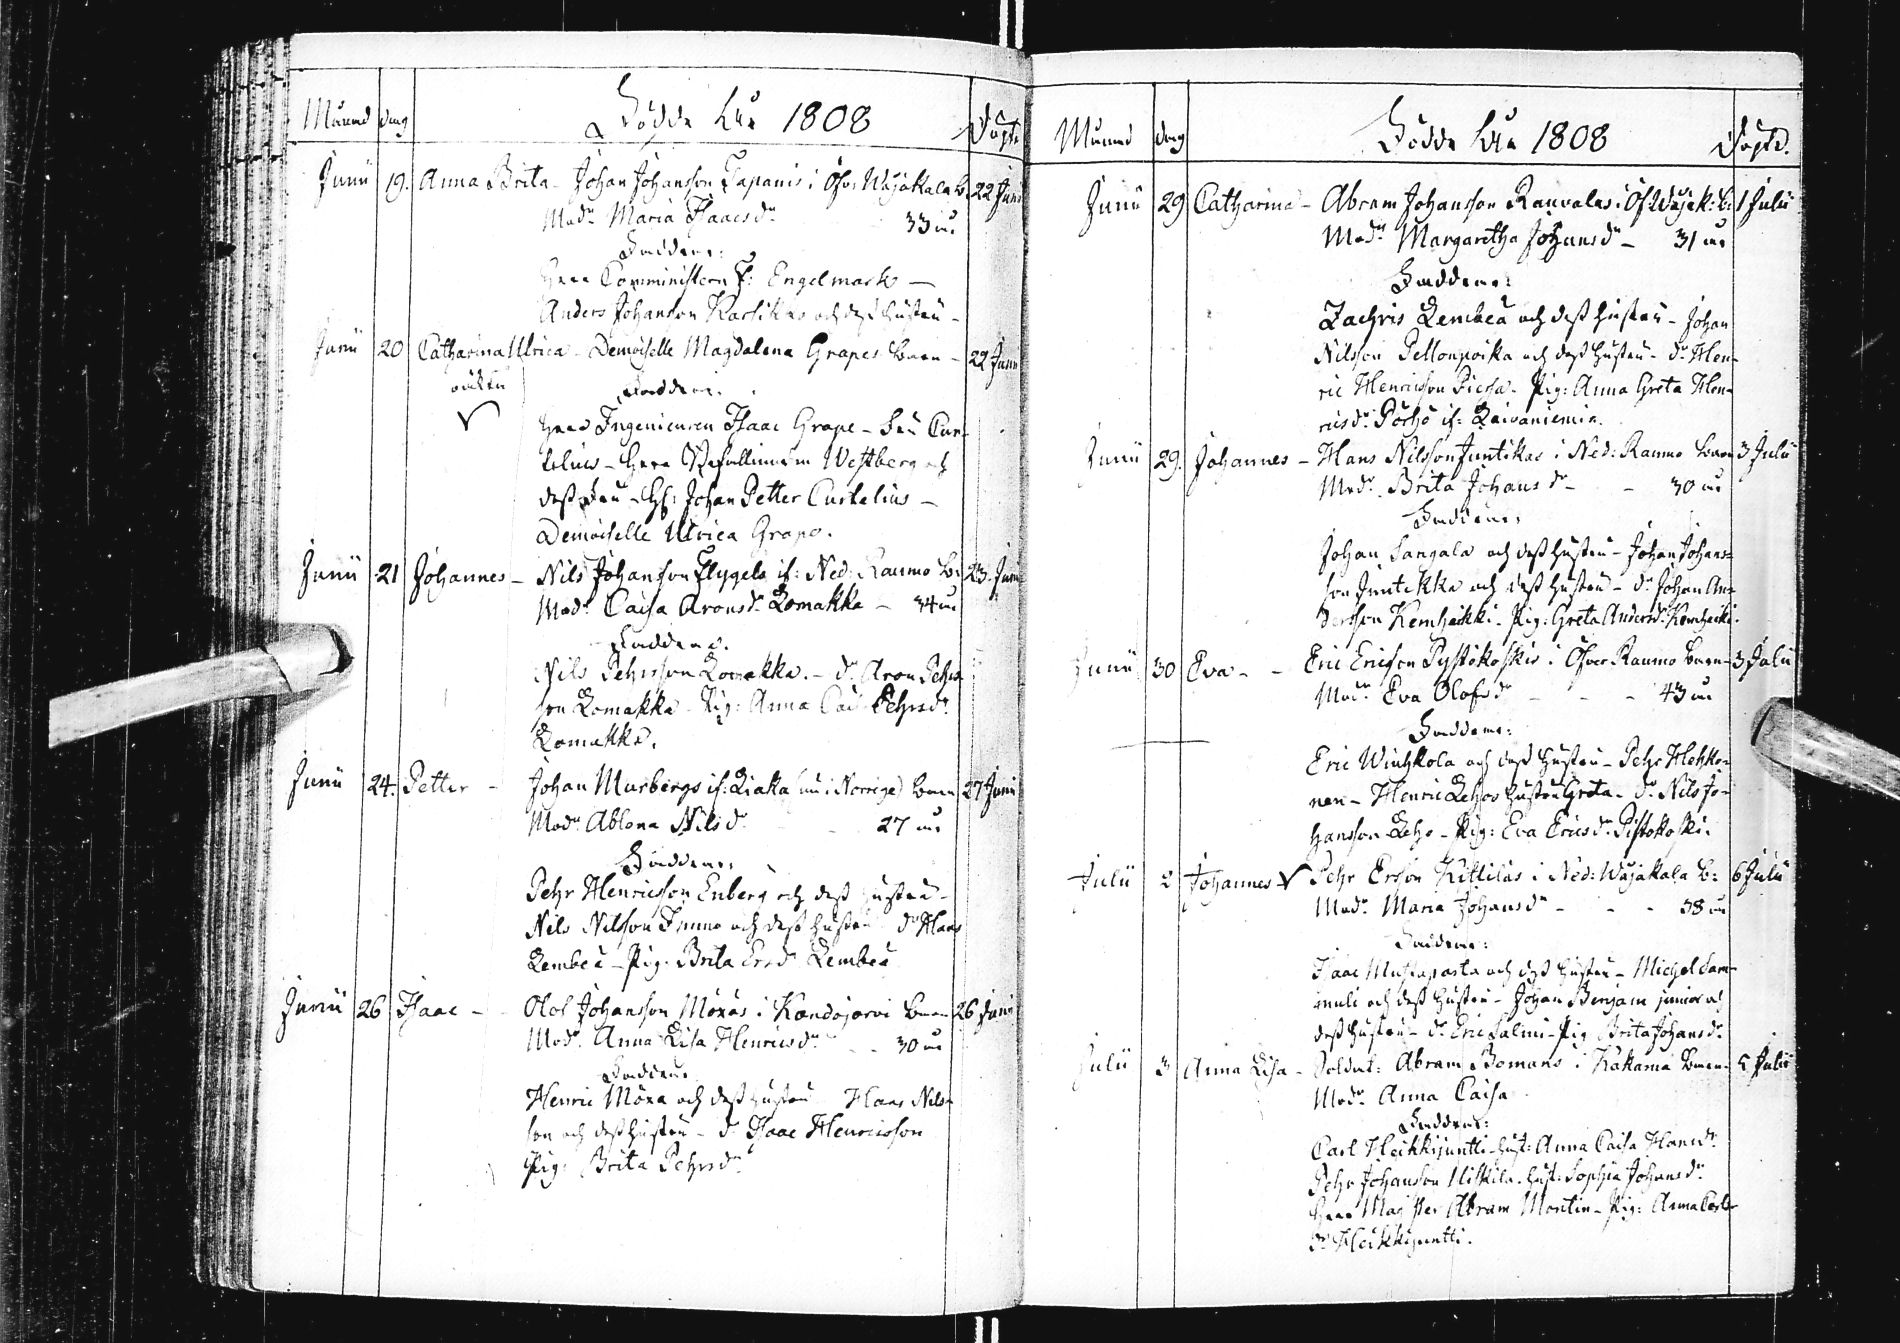 Månad dag Födde År 1808 Döpte
Junii 19. Anna Brita - Johan Johansson Tapanis i Öfv: Wojakala B: 22 Junii
Modr. Maria Isaacsdr 33 år
Faddrar:
Herr Comministern E: Engelmark —
Anders Johansson Karsikas och dess hustru -
Junii 20 Catharina Ulrica - Demoiselle Magdalena Grapes barn - 22 Junii
oäkta
Faddrar.
Herr Ingenieuren Isaac Grape - Fru Cur-
telius - Herr Westberg och
dess Fru - H: Johan Petter Curtelius -
Demoiselle Ulrica Grape.
Junii 21 Johannes - Nils Johansson Flygels if: Ned: Raumo B: 23. Junii
Modr. Caisa Aronsdr Lomakka - 34 år
Faddrar.
Nils Pehrsson Lomakka. - dr. Aron Pehrs-
son Lomakka - Pig: Anna Cai: Pehrsdr
Lomakka.
Junii 24. Petter - Johan Murbergs if: Liaka (nu i Norrige) barn 27 Junii
Modr. Ablona Nilsdr 27 år
Faddrar:
Pehr Henricsson Enberg och dess hustru -
Nils Nilsson och dess hustru dr Hans
Lembeä - Pig: Brita Ersdr Lembeä
Junii 26 Isaac - - Olof Johansson Möxäs i Kardojärvi barn 26 Junii
Modr. Anna Lisa Henricsdr. - - 30 år
Faddrar.
Henric Möxa och dess hustru Hans Nils-
son och dess hustru - dr Isaac Henricsson
Pig: Brita Pehrsdr
Månad dag Födde År 1808 Döpte.
Junii 29 Catharina - Abram Johansson Rauvalas i Öf: Wojak: B: 1 Julii
Modr. Margaretha Johansdr - 31 år
Faddrar:
Zachris Lembeä och dess hustru - Johan
Nilsson Pellonpoika och dess hustru - dr Hen-
ric Henricsson Piessa - Pig: Anna Greta Hen-
ricsdr Porho if: Laivaniemi.
Junii 29. Johannes - Hans Nilsson Juntikas i Ned: Raumo barn 3 Julii
Modr. Brita Johansdr - - 30 år
Faddrar:
Johan Sangala och dess hustru - Johan Johans-
son Juntikka och dess hustru - dr Johan An-
dersson Kemheikki - Pig: Greta Andersdr Kemheikki.
Junii 30 Eva - - Eric Ericsson Pystökoskis i Öfver Raumo barn - 3 Julii
Modr. Eva Olofsdr - - - 43 år
Faddrar:
Eric Winhkola och dess hustru - Pehr Hehko-
nen - Henric Lehos hustru Greta - dr Nils Jo-
hansson Leho - Pig: Eva Ericsdr Pistökoski.
Julii 2 Johannes Pehr Ersson Kittiläs i Ned: Wojakala B: 6 Julii
Modr. Maria Johansdr - - - 38 år
Faddrar:
Isaac Mustaparta och dess hustru - Michel Sam-
muli och dess hustru - Johan Benjam junior och
dess hustru - dr. Eric Salmi - Pig Brita Johansdr.
Julii 3 Anna Lisa - Soldat: Abram Bomans i Kakama barn - 5 Julii
Modr. Anna Caisa
Faddrar:
Carl Heikkijuntti - hust: Anna Caisa Hansdr.
Pehr Johansson Niskila - hust: Sophia Johansdr.
Herr Magister Abram Montin - Pig: Anna Carls-
dr Heikkijuntti.